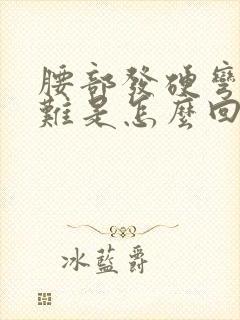 腰部發硬彎
難是怎麼回
冰藍爵